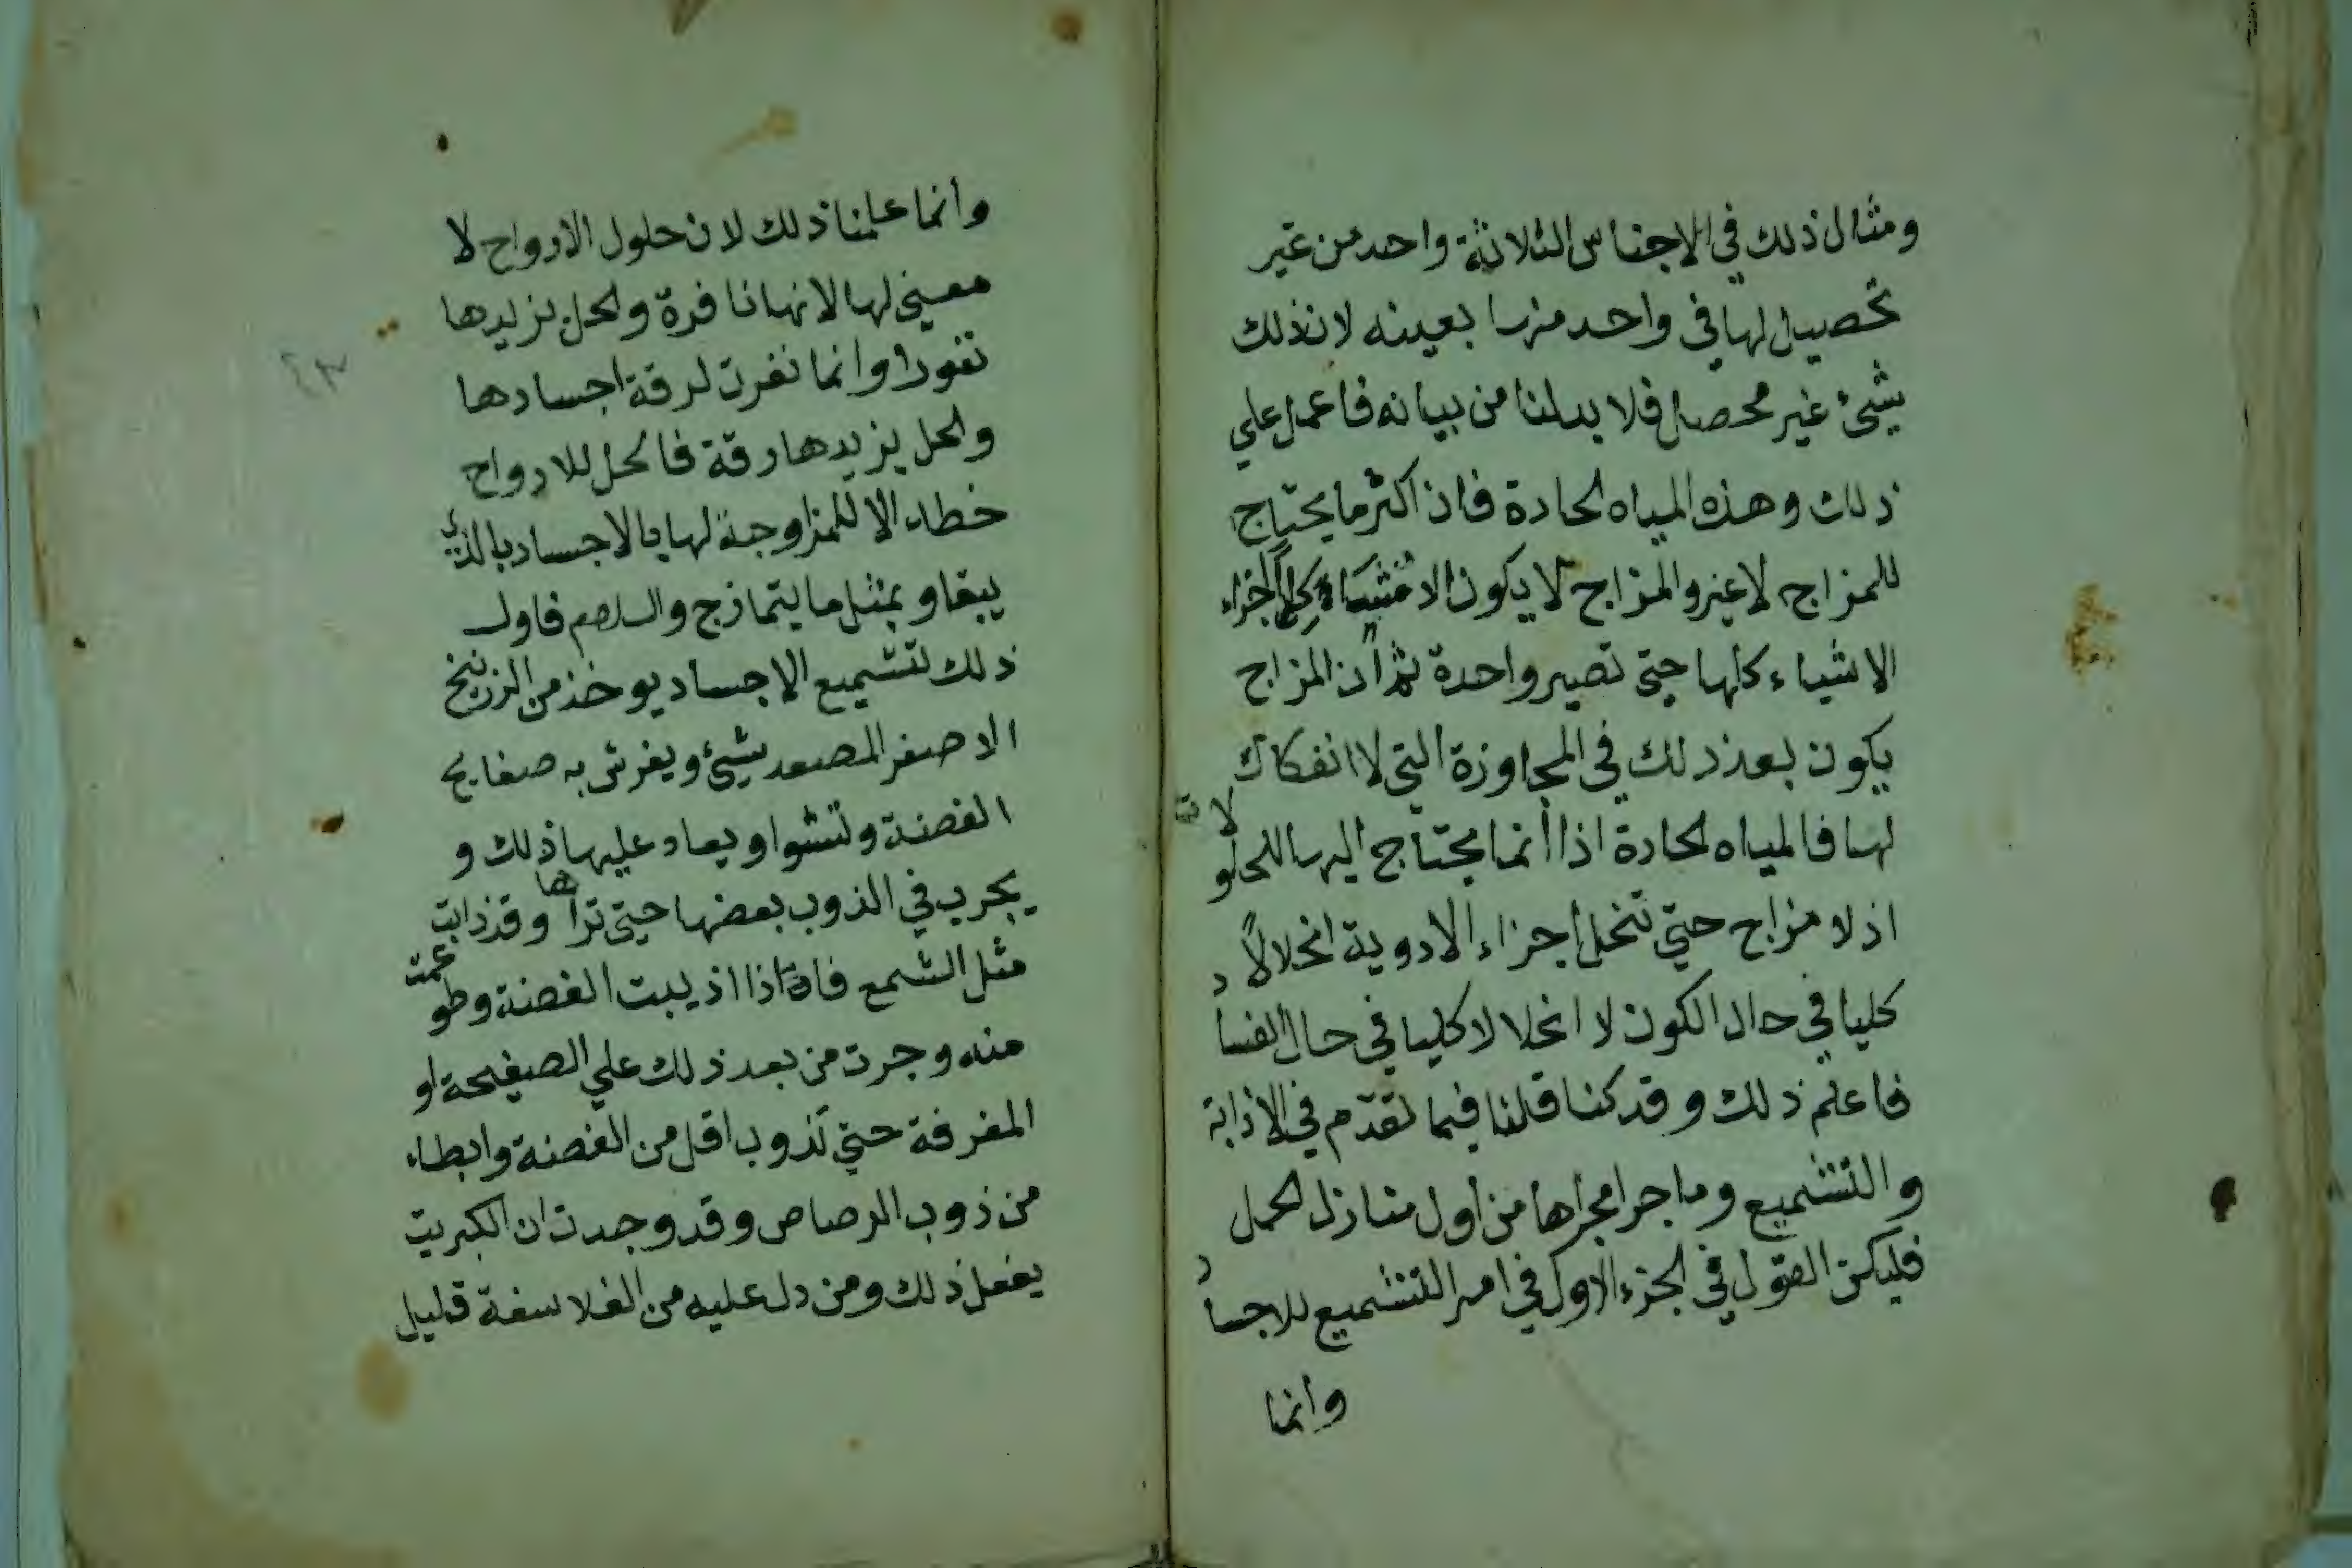 ومثال ذلك في الاجناس الثلاثة واحد من غير
تحصيل لها في واحد منها بعينه لان ذلك
شئ غير محصل فلا بد لنا من بيانه فاعمل علي
ذلك وهذه المياه الحادة فان اكثر ما يحتاج
للمزاج لا غير والمزاج لا يكون الا اجزاء
الاشياء كلها حتي تصير واحدة ثم ان المزاج
يكون بعد ذلك في المجاوزة التي لا انفكاك
لها فالمياه الحادة اذا انما يحتاج اليها للحلولات
اذ لا مزاج حتي تنحل اجزاء الادوية انحلالاً
كليا في حال الكون لا انحلالا كليا في حال الفساد
فاعلم ذلك وقد كنا قلنا فيما تقدم في الاذابة
والتشميع وما جرا مجراها من اول منازل الحمل
فليكن القول في الجزء الاول في امر التشميع للاجساد
وانما
وانما علمنا ذلك لان حلول الارواح لا
معني لها لانها نافرة والحل يزيدها
نفورا وانما نفرت لرقة اجسادها
والحل يزيدها رقة فالحل للارواح
خطاء الا للمزاوجة لها بالاجساد بالذي
يبقا وبمثل ما يتمازج والسلام فاول
ذلك لتشميع الاجساد يوخذ من الزرنيخ
الاصفر المصعد شئ ويفرش به صفايح
الفضة وتشوا ويعاد عليها ذلك و
يجرب في الذوب بعضها حتي تراها وقد ذابت
مثل الشمع فاذا اذيبت الفضة وطوعمت
منه وجرت من بعد ذلك علي الصفيحة او
المغرفة حتي تذوب اقل من الفضة وابطاء
من ذوب الرصاص وقد وجدت ان الكبريت
يفعل ذلك ومن دل عليه من الفلاسفة قليل